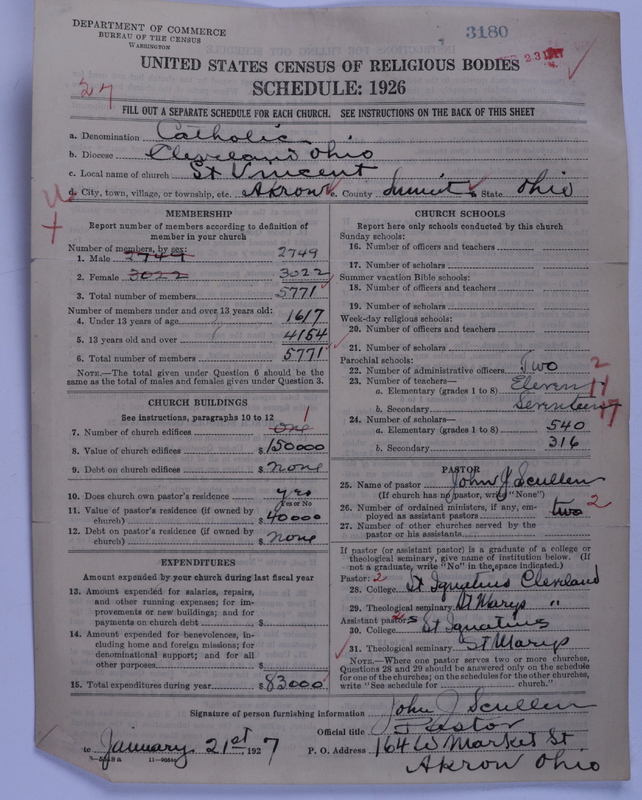 DEPARTMENT OF COMMERCE
BUREAU OF THE CENSUS
WASHINGTON
3180
UNITED STATES CENSUS OF RELIGIOUS BODIES
SCHEDULE: 1926
27
FILL OUT A SEPARATE SCHEDULE FOR EACH CHURCH. SEE INSTRUCTIONS ON THE BACK OF THIS SHEET
a. Denomination Catholic
b. Diocese Cleveland Ohio
c. Local name of church St Vincent
d. City, town, village, or township, etc. Akron e. County Summit State Ohio
MEMBERSHIP
Report number of members according to definition of
member in your church
Number of members, by sex:
1. Male 2749 2749
2. Female 3022 3022
3. Total number of members 5771
Number of members under and over 13 years old:
4. Under 13 years of age 1617
5. 13 years old and over 4154
6. Total number of members 5771
NOTE.—The total given under Question 6 should be the
same as the total of males and females given under Question 3.
CHURCH BUILDINGS
See instructions, paragraphs 10 to 12
7. Number of church edifices One 1
8. Value of church edifices $150000
9. Debt on church edifices $ none
10. Does church own pastor's residence yes
Yes or No
11. Value of pastor's residence (if owned by
church) $ 40000
12. Debt on pastor's residence (if owned by
church) $ none
EXPENDITURES
Amount expended by your church during last fiscal year
13. Amount expended for salaries, repairs,
and other running expenses; for im-
provements or new buildings; and for
payments on church debt $
14. Amount expended for benevolences, in-
cluding home and foreign missions; for
denominational support; and for all
other purposes $
15. Total expenditures during year $ 83000
CHURCH SCHOOLS
Report here only schools conducted by this church
Sunday schools:
16. Number of officers and teachers
17. Number of scholars
Summer vacation Bible schools:
18. Number of officers and teachers
19. Number of scholars
Week-day religious schools:
20. Number of officers and teachers
21. Number of scholars
Parochial schools:
22. Number of administrative officers Two 2
23. Number of teachers—
a. Elementary (grades 1 to 8) Eleven 11
b. Secondary Seventeen 17
24. Number of scholars—
a. Elementary (grades 1 to 8) 540
b. Secondary 316
PASTOR
25. Name of pastor John J Scullen
(If church has no pastor, write "None")
26. Number of ordained ministers, if any, em-
ployed as assistant pastors two 2
27. Number of other churches served by the
pastor or his assistants
If pastor (or assistant pastor) is a graduate of a college or
theological seminary, give name of institution below. (If
not a graduate, write "No" in the space indicated.)
Pastor: 2
28. College St Ignatius Cleveland
29. Theological seminary St Marys "
Assistant pastors
30. College St Ignatius
31. Theological seminary St Marys
NOTE.—Where one pastor serves two or more churches,
Questions 28 and 29 should be answered only on the schedule
for one of the churches; on the schedules for the other churches,
write "See schedule for church."
Signature of person furnishing information John J Scullen
Official title Pastor
January 21st 1927 P. O. Address 164 W Market St.
Akron Ohio